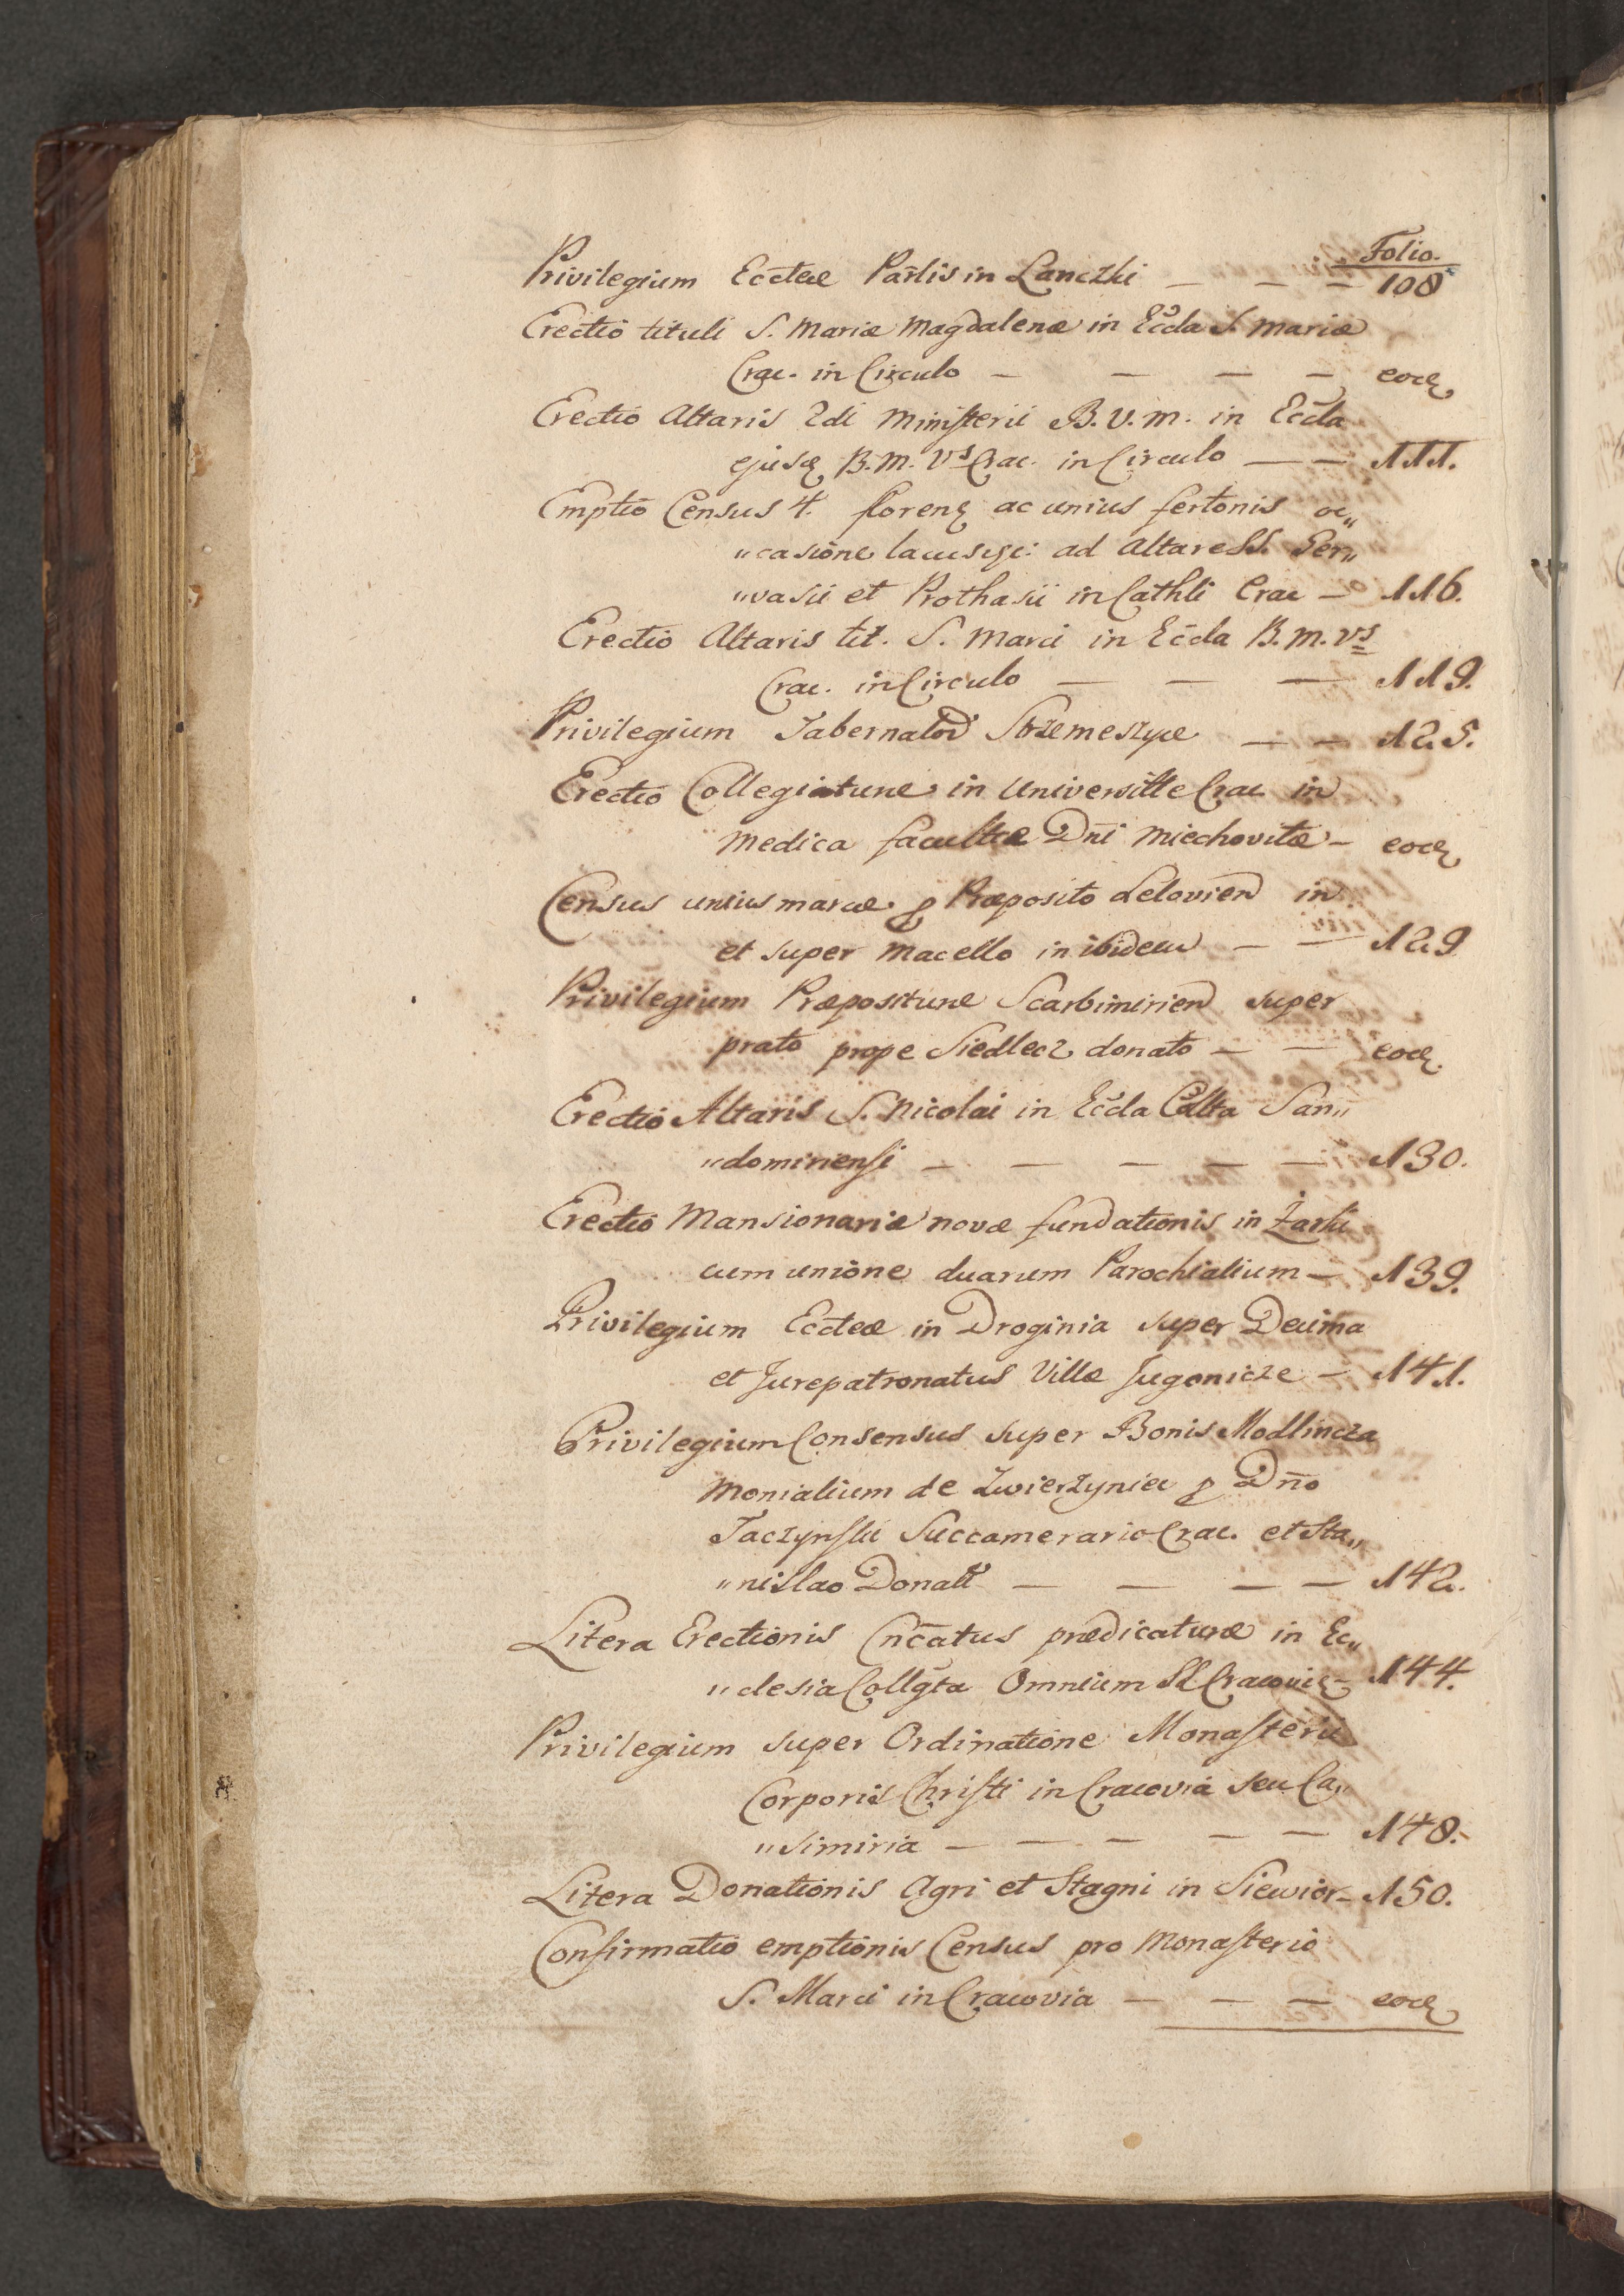 Folio.
Privilegium Eccleæ Parlis in Lanczki — — — 108
Erectio tituli S. Mariæ Magdalenæ in Eccla S. Mariæ
Crac. in Circulo — — — — eod
Erectio Altaris 2di Ministerii B. V. M. in Eccla
ejusd B. M. Vs Crac. in Circulo — — 111.
Emptio Census 4. floren ac unius fertonis oc„
„casione ad Altare SS. Ger„
„vasii et Prothasii in Cathli Crac — 116.
Erectio Altaris tit. S. Marci in Eccla B. M. Vs
Crac. in Circulo — — — 119.
Privilegium Tabernator Strzemeszyce — — 125.
Erectio Collegiaturæ in Universitte Crac in
Medica facultte Dni Miechovitæ — eod
Census unius marcæ p Præposito Lelovien in
et super macello inibidem — — 129
Privilegium Præposituræ Scarbimirien super
prato prope Siedlecz donato — — eod
Erectio Altaris S. Nicolai in Eccla Collta San„
„domiriensi — — — — — 130.
Erectio Mansionariæ novæ fundationis in Żarki
cum unione duarum Parochialium — 139.
Privilegium Eccleæ in Droginia super Decima
et Jurepatronatus Villæ Jugonicze — 141.
Privilegium Consensus super Bonis Modlnicza
Monialium de Zwierzyniec p Dno
Taczynski Succamerario Crac. et Sta„
„nislao Donati — — — — 142.
Litera Erectionis Cncatus prædicaturæ in Ec„
„clesia Collgta Omnium SS. Cracovie — 144.
Privilegium super Ordinatione Monasterii
Corporis Christi in Cracovia seu Ca„
„simiria — — — — — 148.
Litera Donationis Agri et Stagni in Siewior — 150.
Confirmatio emptionis Census pro Monasterio
S. Marci in Cracovia — — — eod